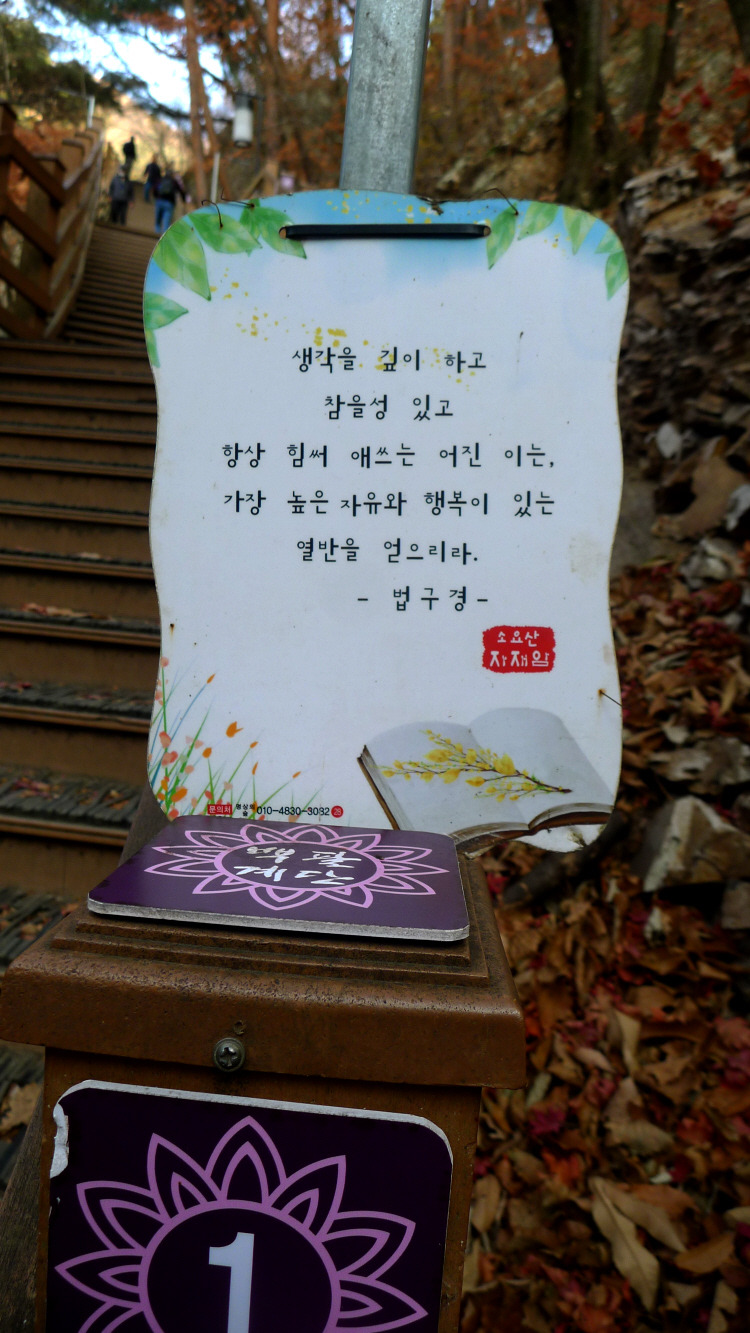 생각을 깊이 하고
참을성 있고
항상 힘써 애쓰는 어진 이는,
가장 높은 자유와 행복이 있는
열반을 얻으리라.
- 법구경 -
소요산
자재암
문의처 010-4830-3082
1